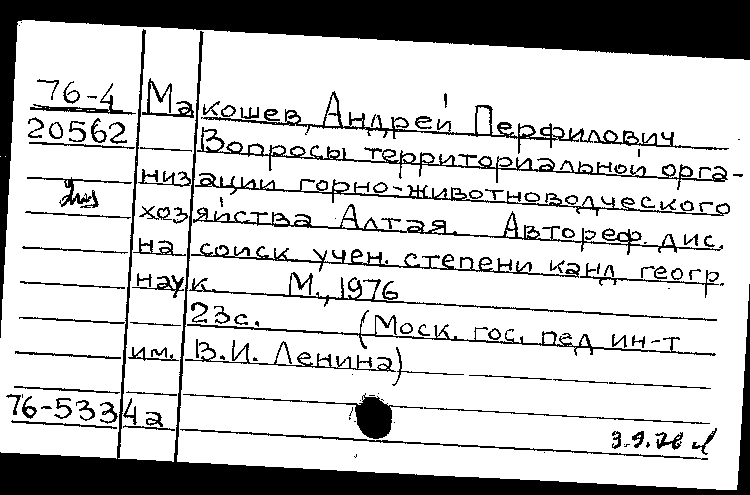 76-4 Макошев, Андрей Перфилович
20562 Вопросы территориальной орга-
низации горно-животноводческого
хозяйства Алтая. Автореф. дис.
на соиск. учен. степени канд геогр.
наук. М., 1976
23с. (Моск. гос. пед ин-т
им. В.И. Ленина)
76-5334а